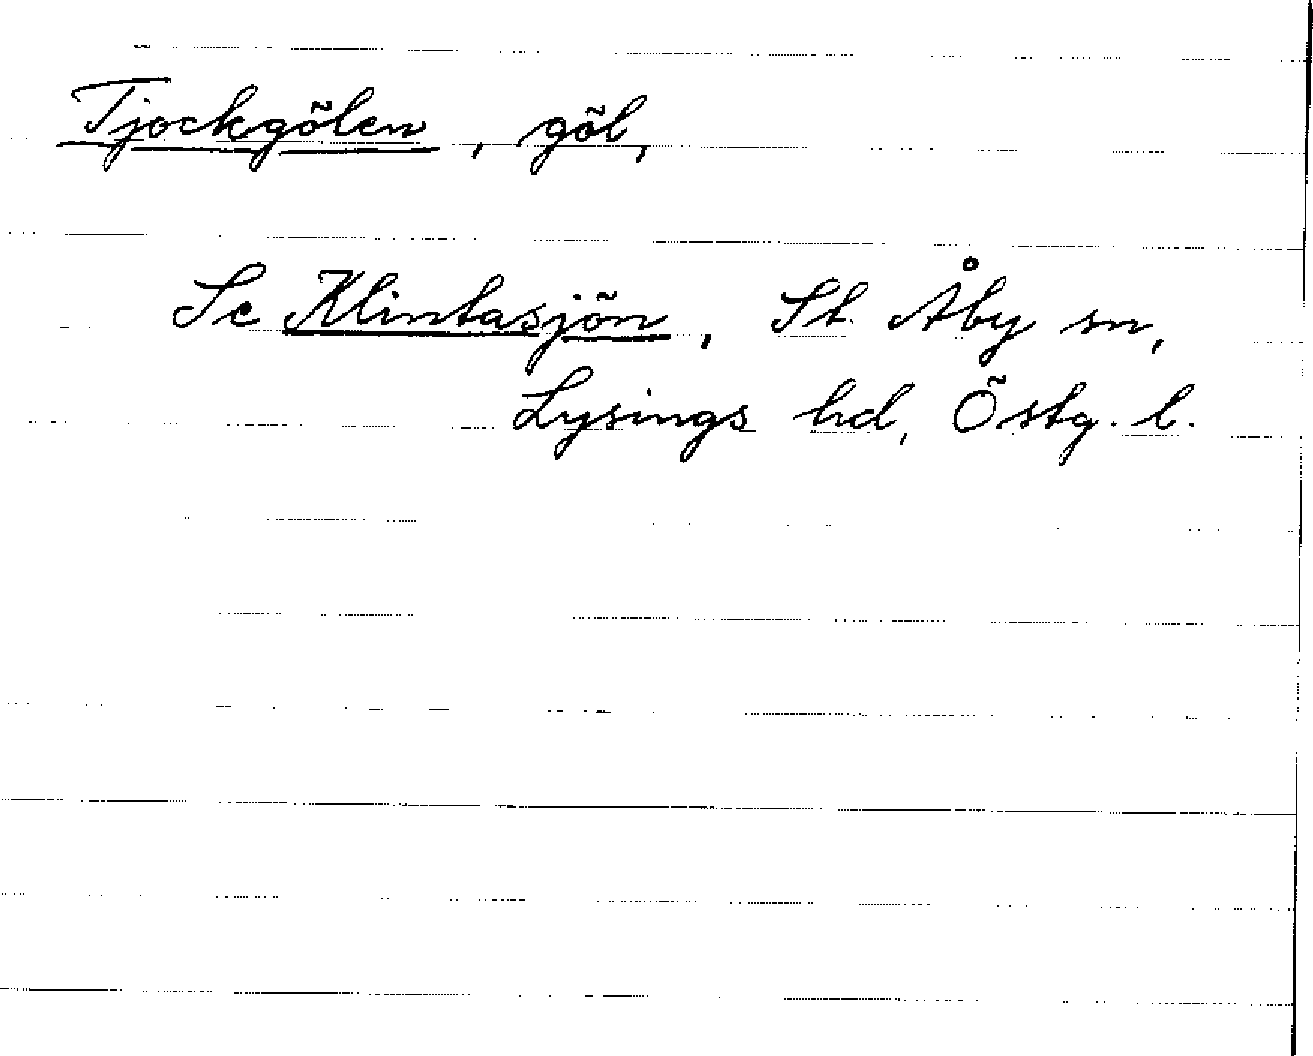 Tjockgölen, göl,
Se Klintasjön, St. Åby sn,
Lysings hd, Östg. l.